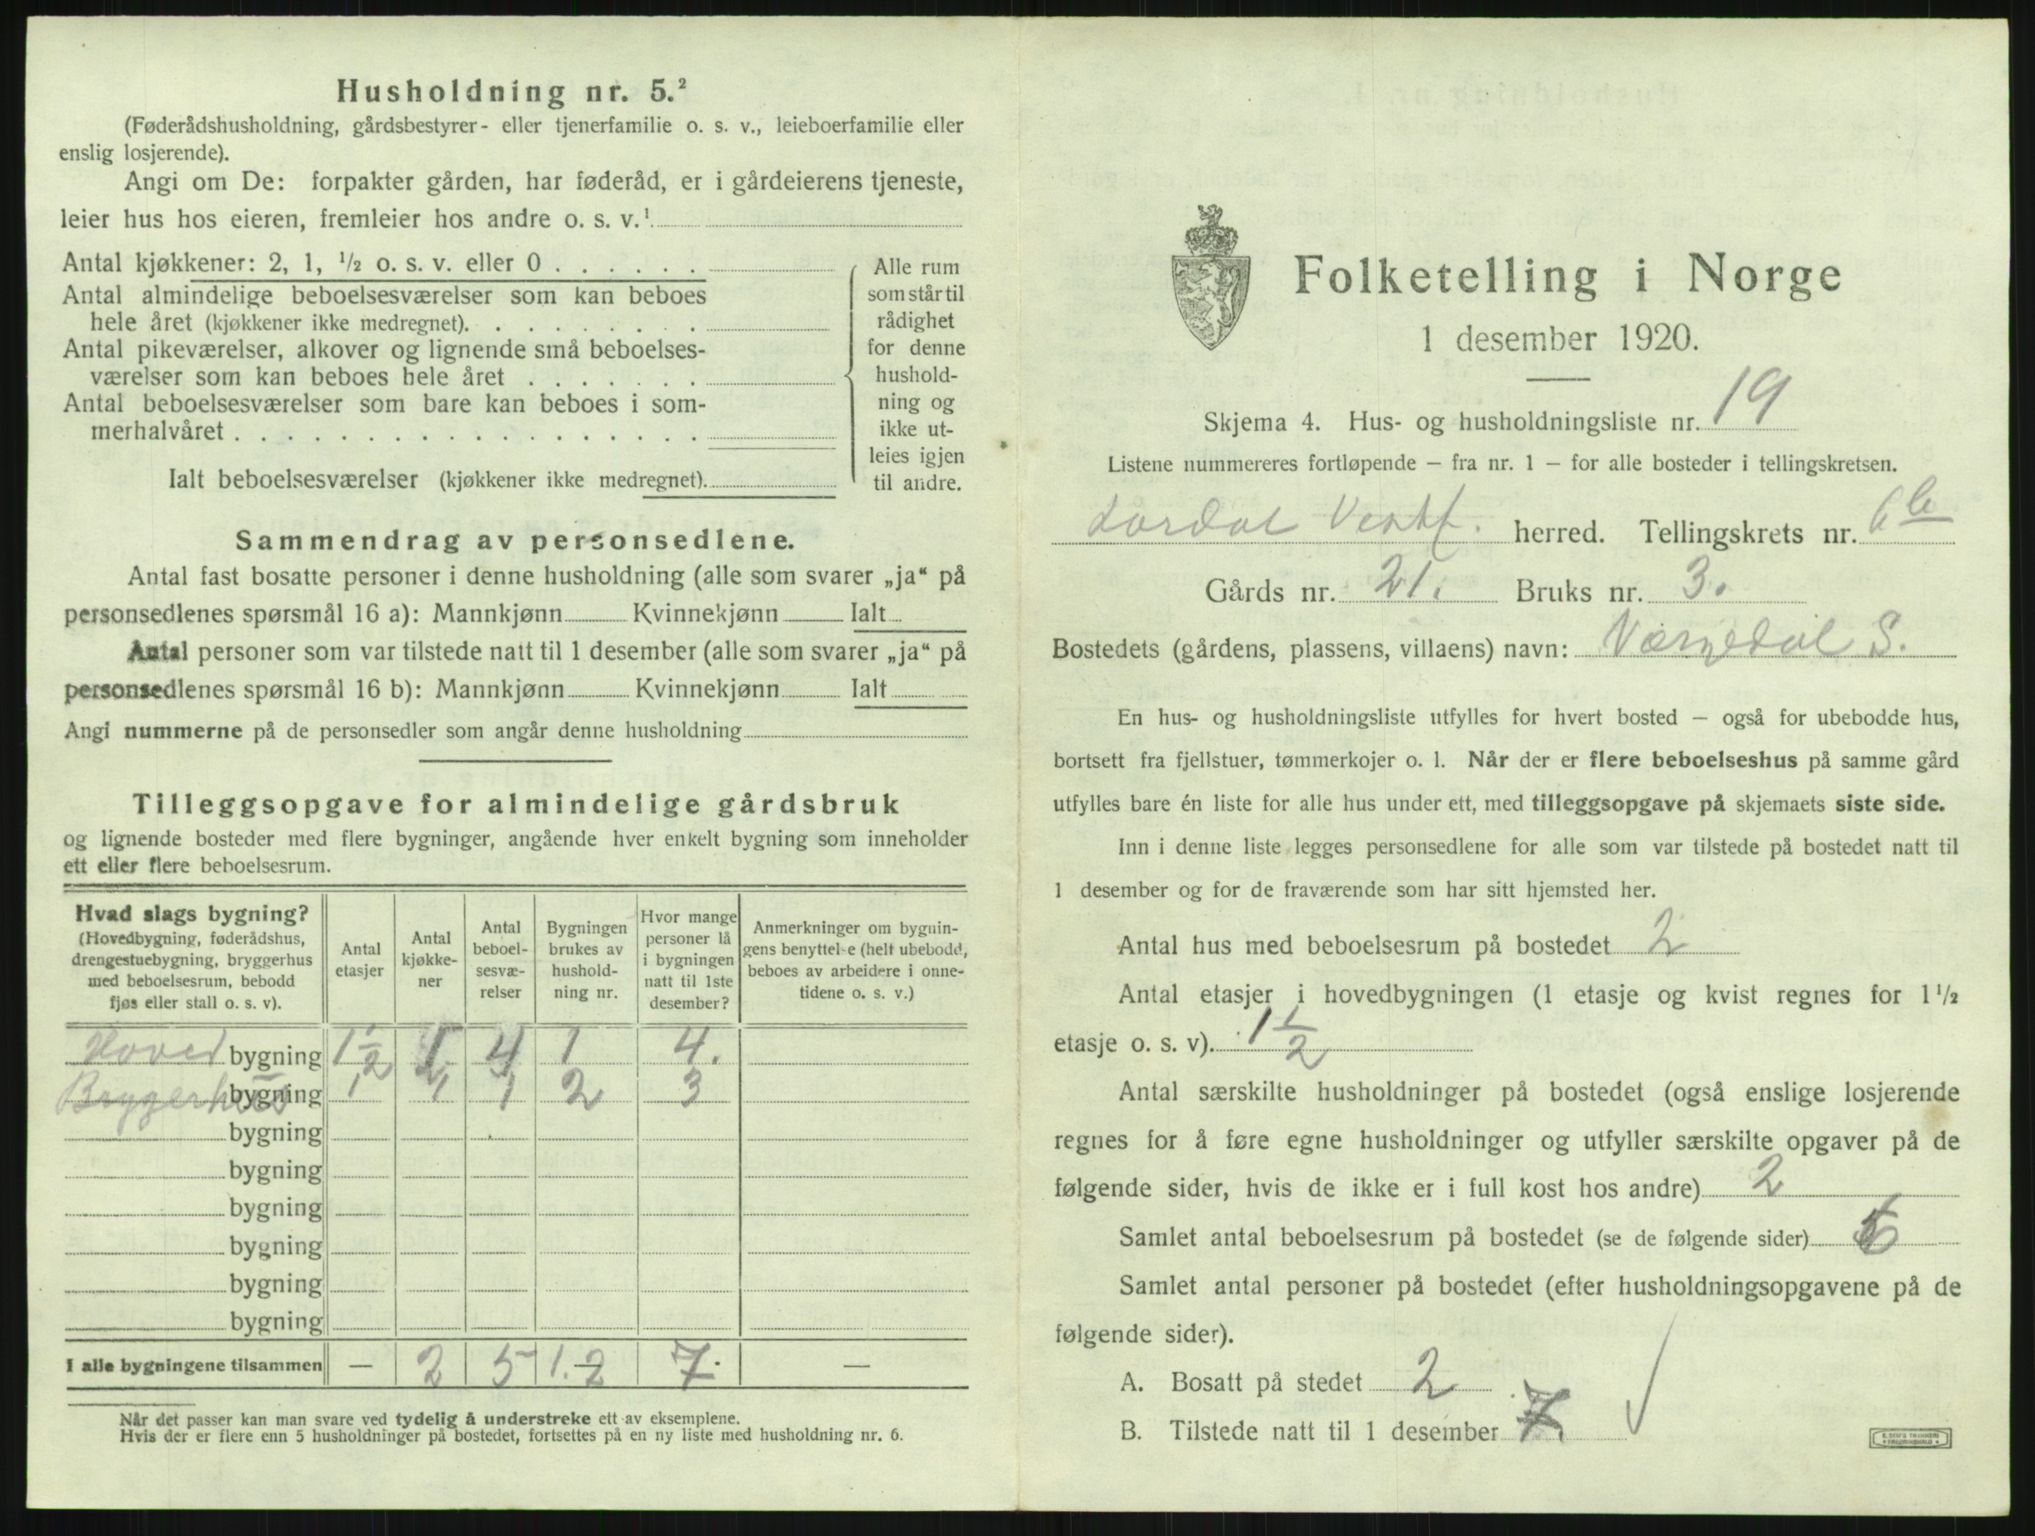 Husholdning nr. 5.²
(Føderådshusholdning, gårdsbestyrer- eller tjenerfamilie o. s. v., leieboerfamilie eller
enslig losjerende).
Angi om De: forpakter gården, har føderåd, er i gårdeierens tjeneste,
leier hus hos eieren, fremleier hos andre o. s. v.¹
Antal kjøkkener: 2, 1, ½ o. s. v. eller 0 . . . . . .
Antal almindelige beboelsesværelser som kan beboes
hele året (kjøkkener ikke medregnet). . . . . . . . .
Antal pikeværelser, alkover og lignende små beboelses-
værelser som kan beboes hele året . . . . . . .
Antal beboelsesværelser som bare kan beboes i som-
merhalvåret . . . . . . . . . . . . . . . . . .
Ialt beboelsesværelser (kjøkkener ikke medregnet).
Alle rum
som står til
rådighet
for denne
hushold-
ning og
ikke ut-
leies igjen
til andre.
Sammendrag av personsedlene.
Antal fast bosatte personer i denne husholdning (alle som svarer „ja“ på
personsedlenes spørsmål 16 a): Mannkjønn Kvinnekjønn Ialt
Antal personer som var tilstede natt til 1 desember (alle som svarer „ja“ på
personsedlenes spørsmål 16 b): Mannkjønn Kvinnekjønn Ialt
Angi nummerne på de personsedler som angår denne husholdning
Tilleggsopgave for almindelige gårdsbruk
og lignende bosteder med flere bygninger, angående hver enkelt bygning som inneholder
ett eller flere beboelsesrum.
Hvad slags bygning?
(Hovedbygning, føderådshus,
drengestuebygning, bryggerhus
med beboelsesrum, bebodd
fjøs eller stall o. s. v).
Antal
etasjer
Antal
kjøkke-
ner
Antal
beboel-
sesvæ-
relser
Bygningen
brukes av
hushold-
ning nr.
Hvor mange
personer lå
i bygningen
natt til 1ste
desember?
Anmerkninger om bygnin-
gens benyttelse (helt ubebodd,
beboes av arbeidere i onne-
tidene o. s. v.)
Hoved bygning 1½ 1 4 1 4.
Bryggerhus bygning 1 1 1 2 3
bygning
bygning
bygning
bygning
bygning
bygning
I alle bygningene tilsammen — 2 5 1.2 7. —
Når det passer kan man svare ved tydelig å understreke ett av eksemplene.
Hvis der er flere enn 5 husholdninger på bostedet, fortsettes på en ny liste med husholdning nr. 6.
Folketelling i Norge
1 desember 1920.
Skjema 4. Hus- og husholdningsliste nr. 19
Listene nummereres fortløpende — fra nr. 1 — for alle bosteder i tellingskretsen.
Lardal Vestf. herred. Tellingskrets nr. 6b
Gårds nr. 21. Bruks nr. 3.
Bostedets (gårdens, plassens, villaens) navn: Værnedal S.
En hus- og husholdningsliste utfylles for hvert bosted — også for ubebodde hus,
bortsett fra fjellstuer, tømmerkojer o. l. Når der er flere beboelseshus på samme gård
utfylles bare én liste for alle hus under ett, med tilleggsopgave på skjemaets siste side.
Inn i denne liste legges personsedlene for alle som var tilstede på bostedet natt til
1 desember og for de fraværende som har sitt hjemsted her.
Antal hus med beboelsesrum på bostedet 2
Antal etasjer i hovedbygningen (1 etasje og kvist regnes for 1½
etasje o. s. v). 1½
Antal særskilte husholdninger på bostedet (også enslige losjerende
regnes for å føre egne husholdninger og utfyller særskilte opgaver på de
følgende sider, hvis de ikke er i full kost hos andre) 2
Samlet antal beboelsesrum på bostedet (se de følgende sider)
Samlet antal personer på bostedet (efter husholdningsopgavene på de
følgende sider).
A. Bosatt på stedet 2
B. Tilstede natt til 1 desember 7